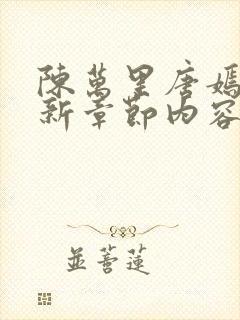 陳萬里唐嫣
新章節內容
並蒂蓮